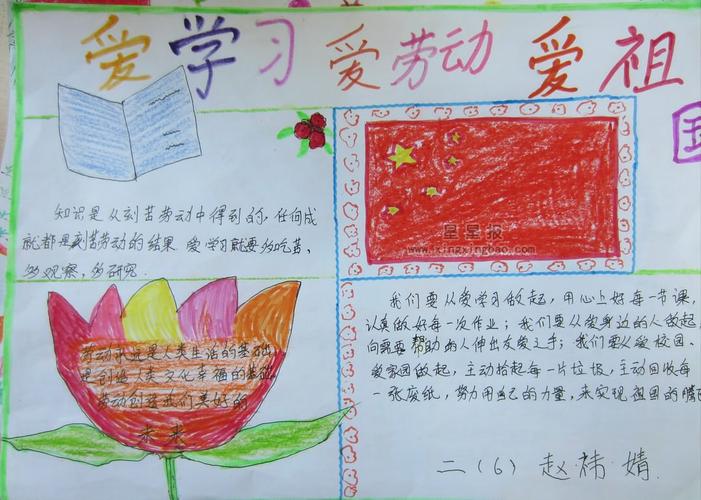 爱学习爱劳动爱祖
国
知识是从刻苦劳动中得到的,任何成
就都是刻苦劳动的结果.爱学习就要多吃苦、
多观察、多研究.
星星报
www.ixingxingbao.com
我们要从爱学习做起,用心上好每一节课,
认真做好每一次作业;我们要从爱身边的人做起
向需要帮助的人伸出友爱之手;我们要从爱校园、
爱家园做起,主动拾起每一片垃圾,主动回收每
一张废纸,努力用自己的力量,来实现祖国的腾
劳动永远是人类生活的基础
是创造人类文化幸福的基础
劳动创造我们美好的
未来
二(6) 赵祎婧